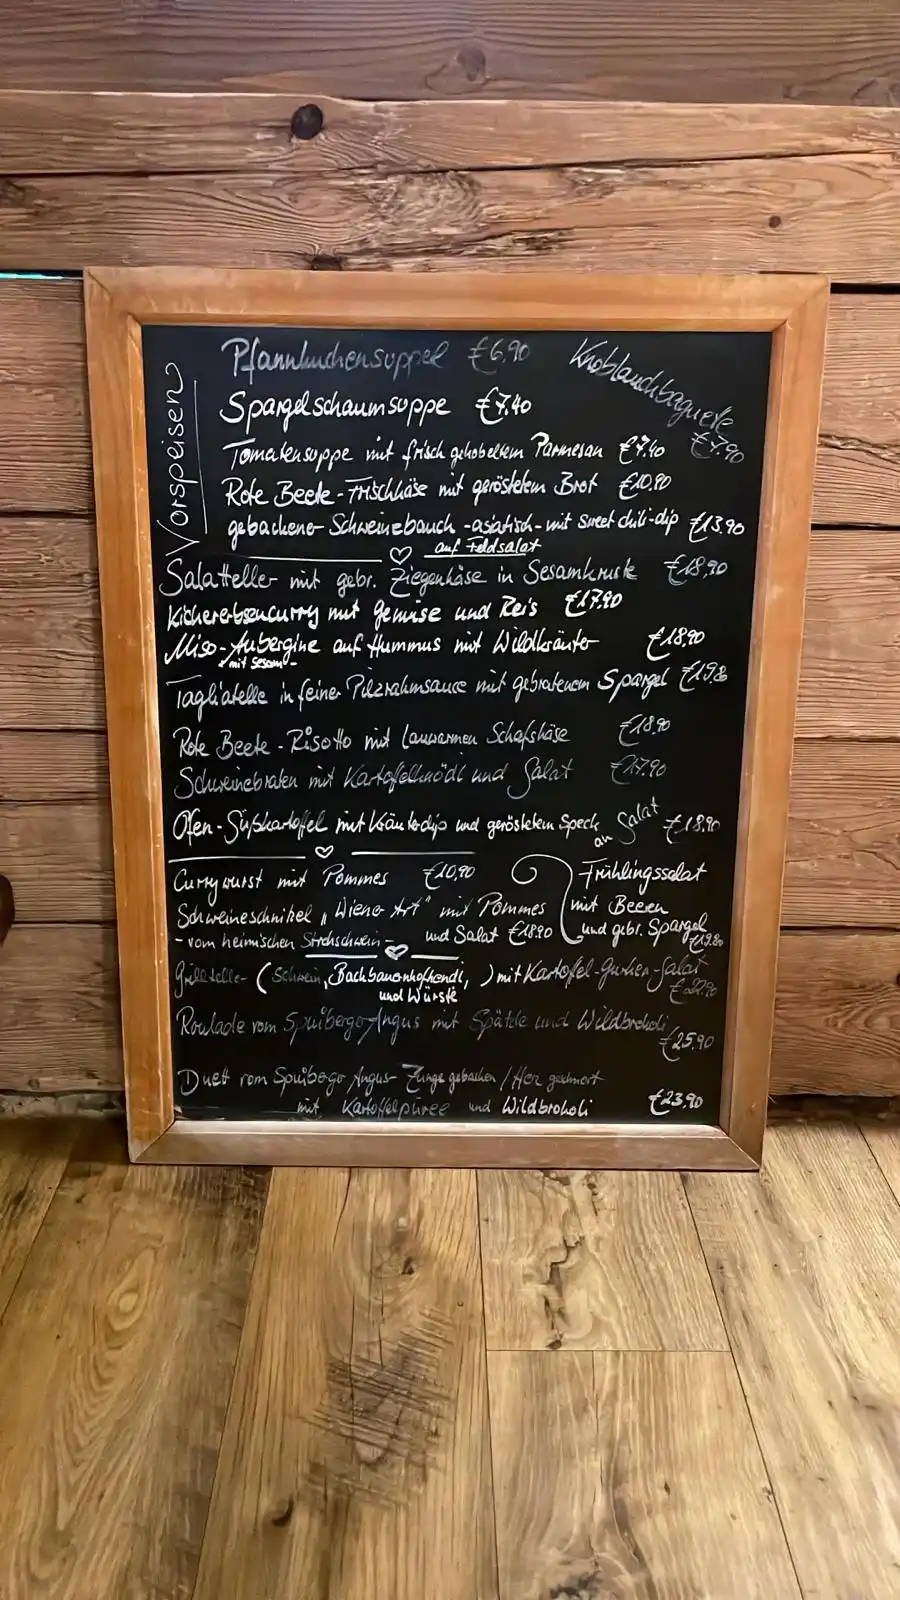 Vorspeisen
Pfannkuchensuppe € 6,90
Knoblauchbaguette
€ 7,90
Spargelschaumsuppe € 7,40
Tomatensuppe mit frisch gehobeltem Parmesan € 7,40
Rote Beete-Frischkäse mit geröstetem Brot € 10,90
gebackener Schweinebauch -asiatisch- mit sweet chili-dip € 13,90
auf Feldsalat
Salatteller mit gebr. Ziegenkäse in Sesamkruste € 18,90
Kichererbsencurry mit Gemüse und Reis € 17,90
Miso-Aubergine auf Hummus mit Wildkräuter € 18,90
-mit Sesam-
Tagliatelle in feiner Pilzrahmsauce mit gebratenem Spargel € 19,80
Rote Beete-Risotto mit lauwarmen Schafskäse € 18,90
Schweinebraten mit Kartoffelknödl und Salat € 17,90
Ofen-Süßkartoffel mit Kräuterdip und geröstetem Speck an Salat € 18,90
Currywurst mit Pommes € 10,90
Frühlingssalat
mit Beeren
und gebr. Spargel
€ 19,80
Schweineschnitzel „Wiener Art" mit Pommes
- vom heimischen Strohschwein - und Salat € 18,90
Grillteller (Schwein, Bachbauernhofhendl, ) mit Kartoffel-Gurken-Salat
und Würstl € 22,90
Roulade vom Angus mit Spätzle und Wildbrokoli
€ 25,90
Duett vom Angus- Zunge gebacken / Herz geschmort
mit Kartoffelpüree und Wildbrokoli € 23,90